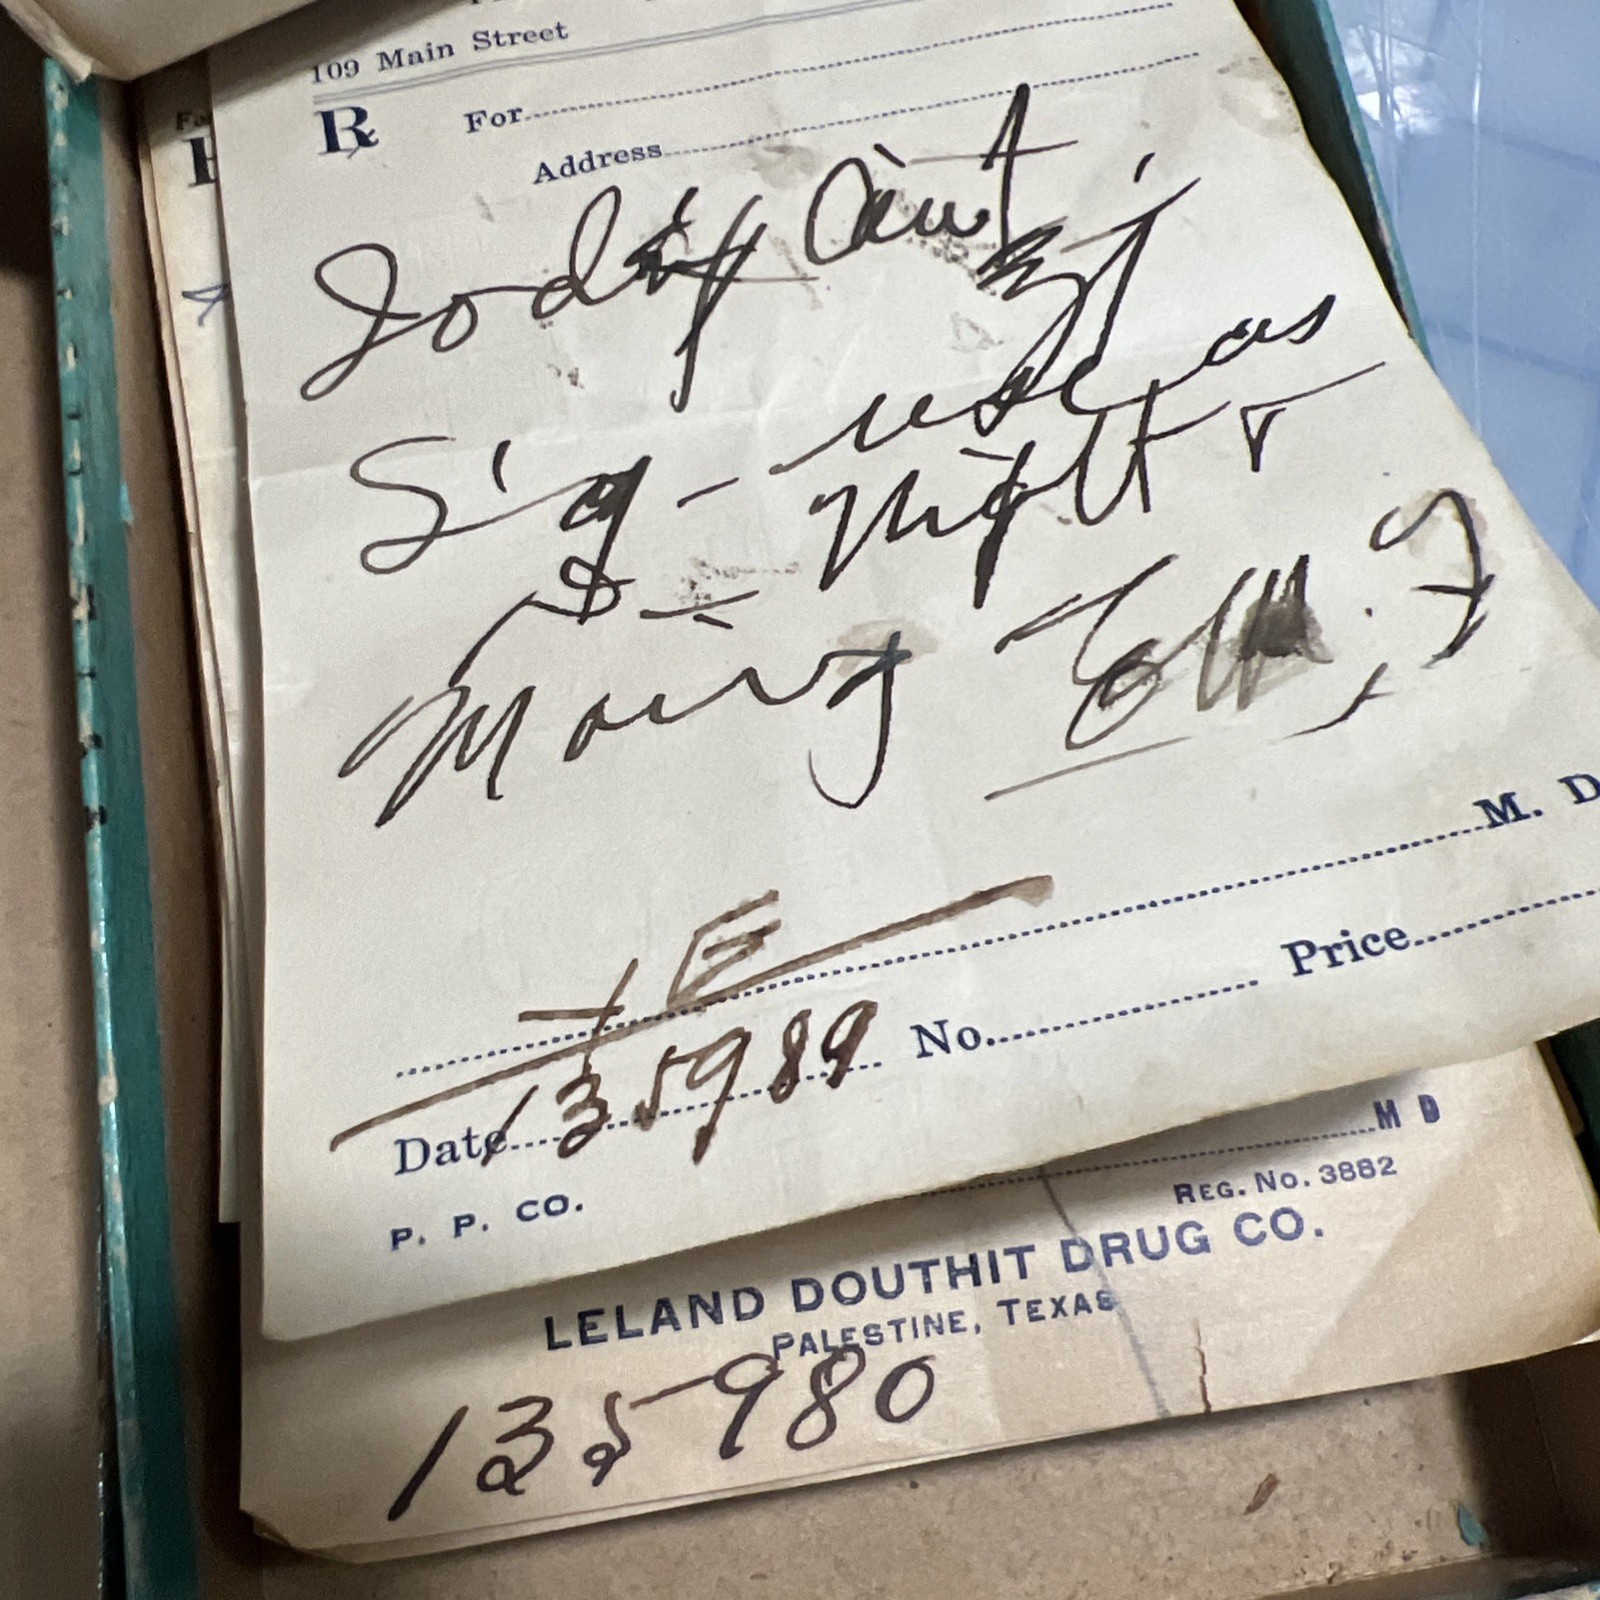 109 Main Street
℞ For
Address
Oint
Sig - use as
night &
Morning
M. D
Date 135989 No. Price
P. P. CO.
M D
REG. NO. 3882
LELAND DOUTHIT DRUG CO.
PALESTINE, TEXAS
135980